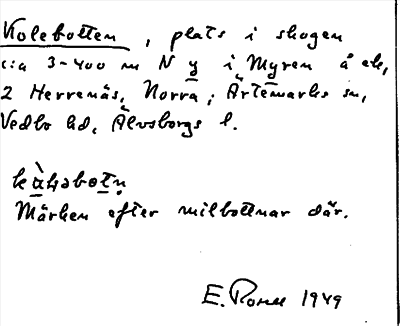 Kolebotten, plats i skogen
c:a 3-400 m N y i Myren å ek,
2 Herrenäs, Norra; Ärtemarks sn,
Vedbo hd, Älvsborgs l.
Märken efter milbottnar där.
E. Rosell 1949